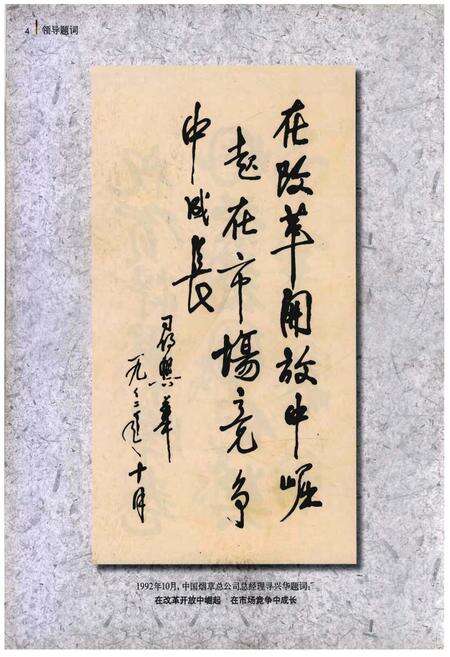 4 领导题词
在改革開放中崛
起在市場竞争
中成長
尋興華
一九九二年十月
1992年10月，中国烟草总公司总经理寻兴华题词：
在改革开放中崛起 在市场竞争中成长